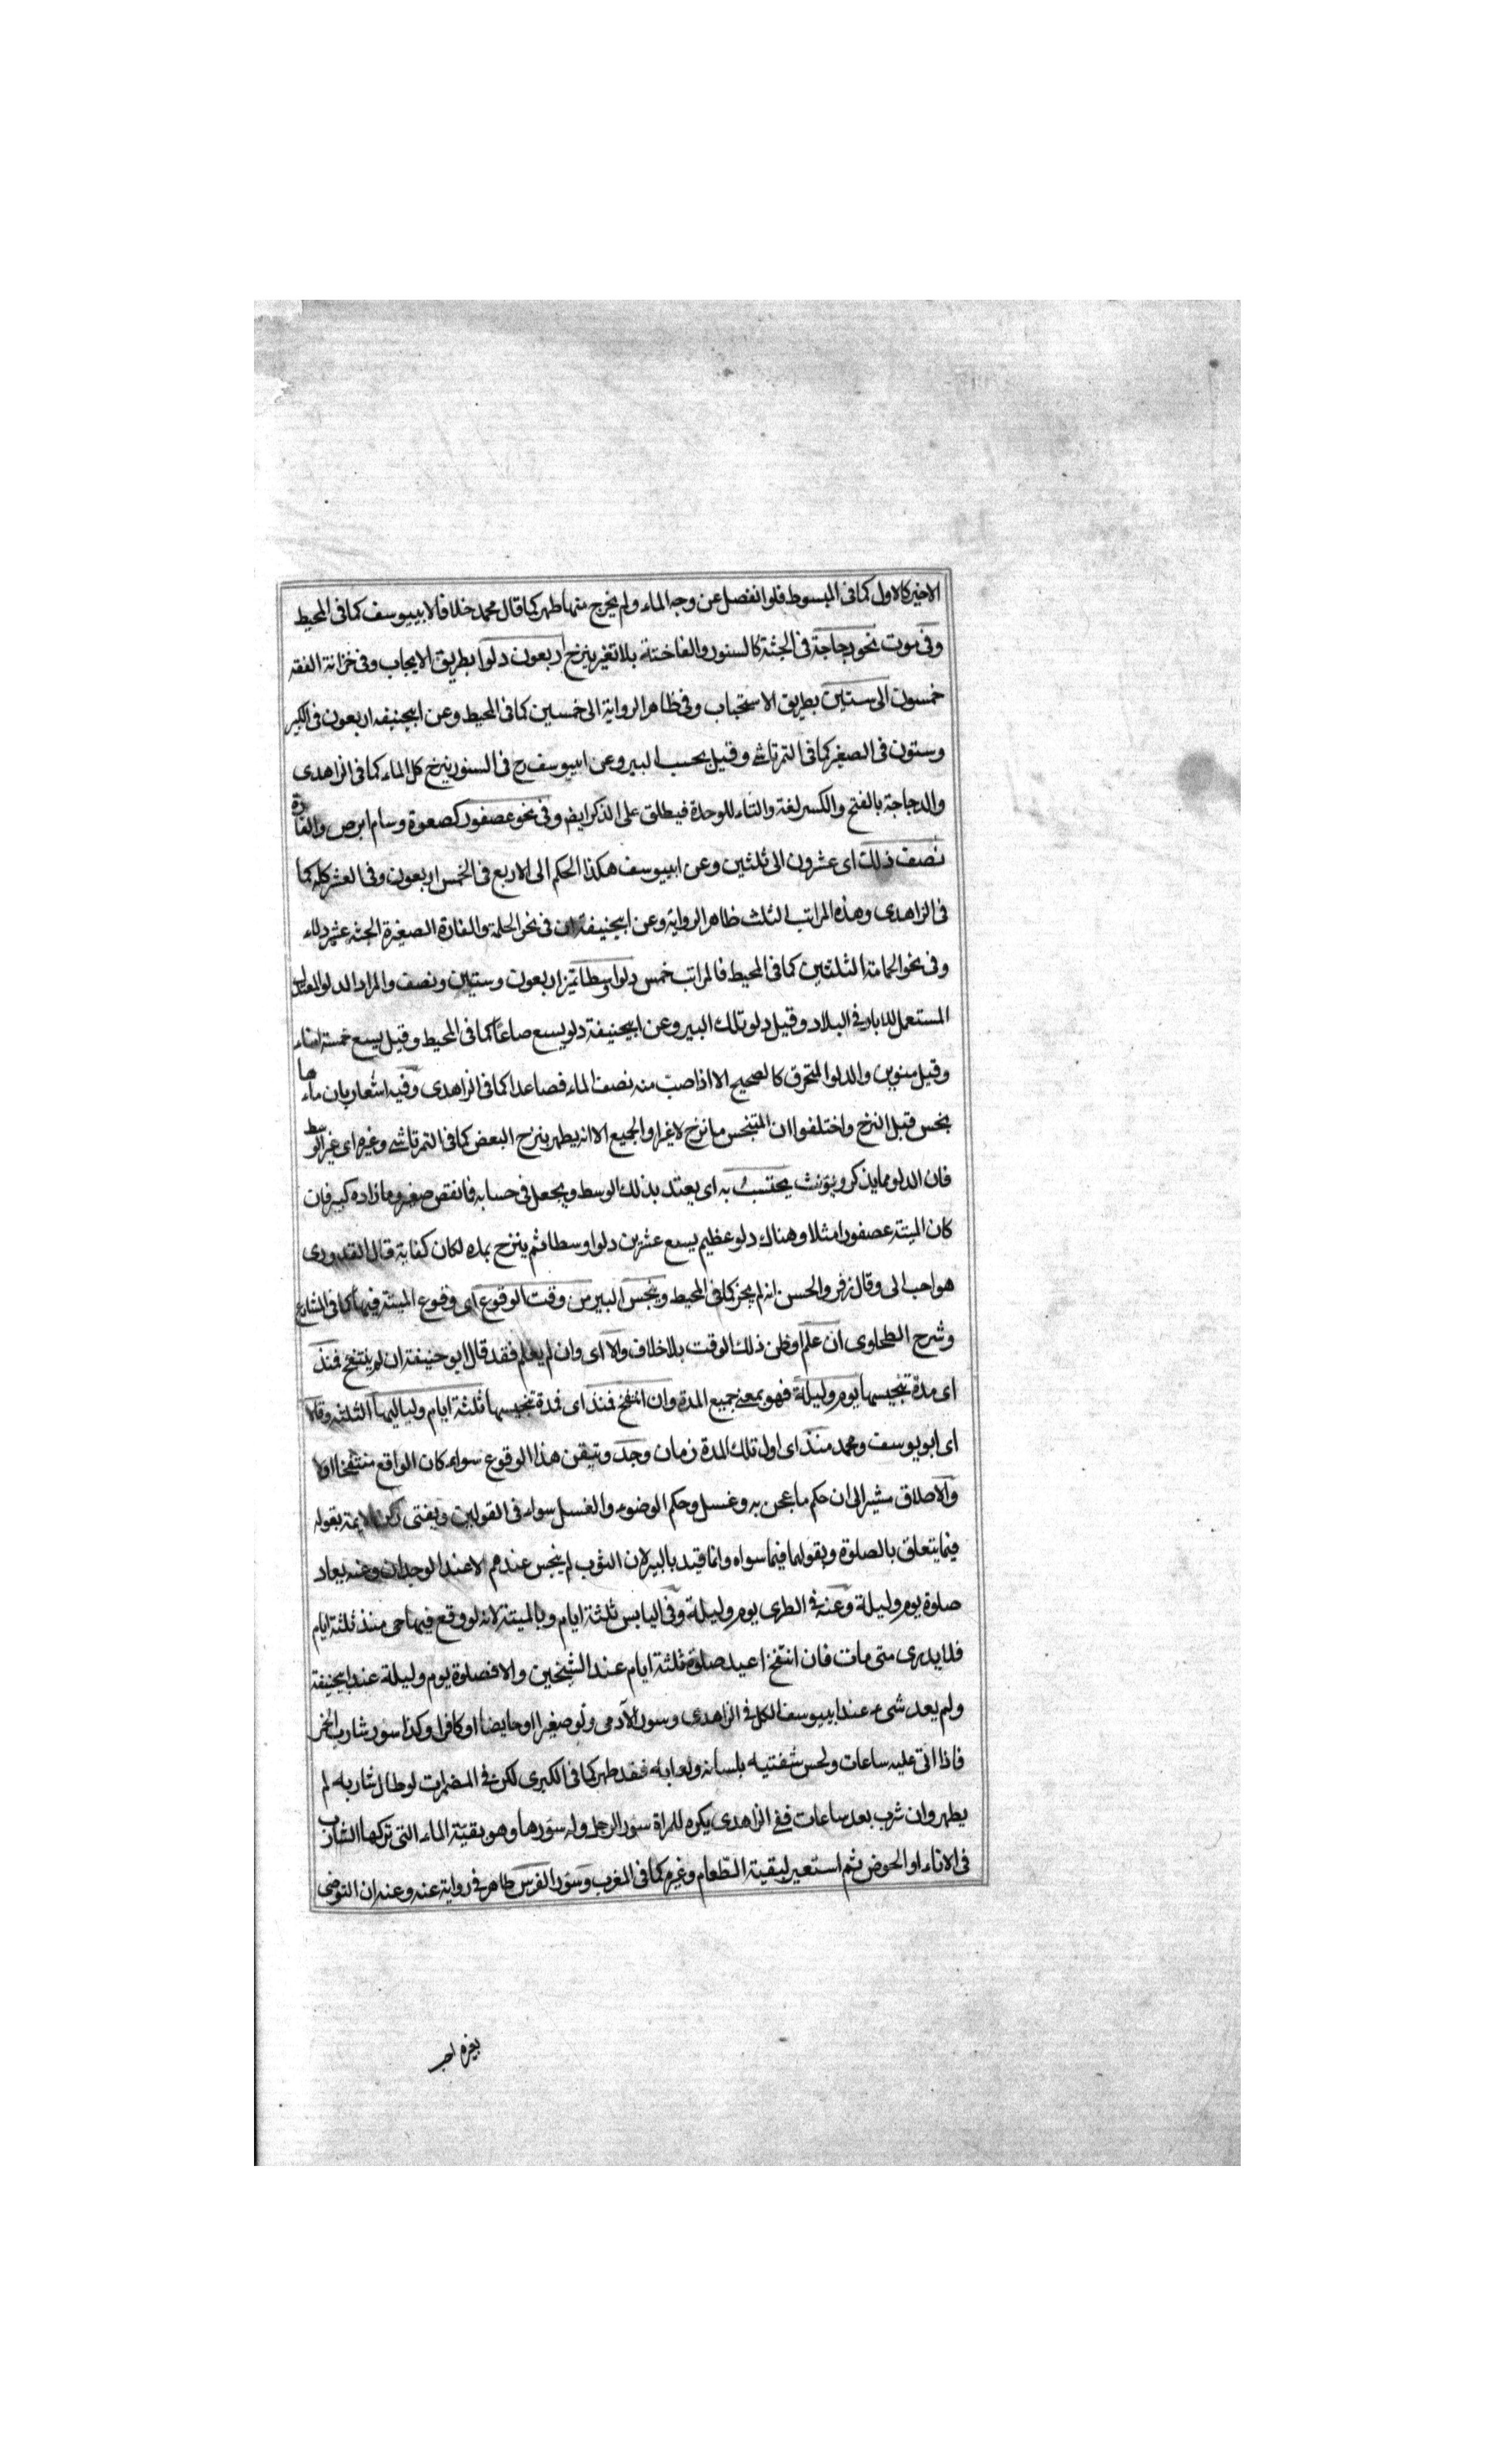 الاخير كالاول كما فى المبسوط فلو انفصل عن وجه الماء ولم يخرج منها طهر كما قال محمد خلافا لابييوسف كما فى المحيط
وفى موت نحو دجاجة فى الجثة كالسنور والفاختة بلا تغير ينزح اربعون دلوا بطريق الايجاب وفى خزانة الفقه
خمسون الى ستين بطريق الاستحباب وفى ظاهر الرواية الى خمسين كما فى المحيط وعن ابيحنيفه اربعون فى الكبير
وستون فى الصغير كما فى التمرتاشى وقيل بحسب البير وعن ابييوسف رح فى السنور ينزح كل الماء كما فى الزاهدى
والدجاجة بالفتح والكسر لغة والتاء للوحدة فيطلق على الذكر ايضا وفى نحو عصفور كصعوة وسام ابرص والفارة
نصف ذلك اى عشرون الى ثلثين وعن ابييوسف هكذا الحكم الى الاربع فى الخمس اربعون وفى العشر كله كما
فى الزاهدى وهذه المراتب الثلث ظاهر الرواية وعن ابيحنيفة ان فى نحو الحلمة والفارة الصغيرة الجثه عشر دلاء
وفى نحو الحمامة الثلثين كما فى المحيط فالمراتب خمس دلوا وسطا تميز اربعون وستين ونصف والمراد الدلو المعتدل
المستعمل للابار فى البلاد وقيل دلو تلك البير وعن ابيحنيفة دلو يسع صاعا كما فى المحيط وقيل يسع خمسة امناء
وقيل منوين والدلو المتخرق كالصحيح الا اذا صب منه نصف الماء فصاعدا كما فى الزاهدى وفيه اشعار بان ماءها
نجس قبل النزح واختلفوا ان المتنجس ما نزح لا غير او الجميع الا انه يطهر بنزح البعض كما فى التمرتاشى وغيره اى غير الوسط
فان الدلو مما يذكر ويؤنث يحتسب به اى يعتد بذلك الوسط ويجعل فى حسابه فما نقص صغير وما زاده كبير فان
كان الميتة عصفورا مثلا وهناك دلو عظيم يسع عشرين دلوا وسطا فثم ينزح بماء لكان كفاية قال القدورى
هو احب الى وقال زفر والحسن انه لم يجز كما فى المحيط وينجس البير من وقت الوقوع اى وقوع الميتة فيها كما فى الشارع
وشرح الطحاوى ان علم او ظن ذلك الوقت بلا خلاف والا اى وان لم يعلم فقد قال ابو حنيفة ان لم ينتفخ فمنذ
اى مدة تنجيسها يوم وليلة فهو بمعنى جميع المدة وان انتفخ فمنذ اى فمدة تنجيسها ثلثة ايام ولياليها الثلثه وقالا
اى ابو يوسف ومحمد منذ اى اول تلك المدة زمان وجد وتيقن هذا الوقوع سواء كان الواقع منتفخا او لا
والاطلاق مشير الى ان حكم ما عجن به وغسل وحكم الوضوء والغسل سواء فى القولين ويفتى ركن الايمة بقوله
فيما يتعلق بالصلوة وبقولهما فيما سواه وانما قيد بالبير لان الثوب لم ينجس عندهم الا عند الوجدان وعنه يعاد
صلوة يوم وليلة وعنه فى الطرى يوم وليلة وفى اليابس ثلثة ايام وبالميتة لانه لو وقع فيها حى منذ ثلثة ايام
فلا يدرى متى مات فان انتفخ اعيد صلوة ثلثة ايام عند الشيخين والا فصلوة يوم وليلة عند ابيحنيفة
ولم يعد شىء عند ابييوسف الكل فى الزاهدى وسور الآدمى ولو صغيرا او حايضا او كافرا وكذا سور شارب الخمر
فاذا اتى عليه ساعات ولحس شفتيه بلسانه ولعابه فقد طهر كما فى الكبرى لكن فى المضمرات لو طال شاربه لم
يطهر وان شرب بعد ساعات ففى الزاهدى يكره للمراة سور الرجل وله سورها وهو بقية الماء التى تركها الشارب
فى الاناء او الحوض ثم استعير لبقية الطعام وغيره كما فى المغرب وسور الفرس طاهر فى رواية عنه وعنه ان التوضى
بغيره احب